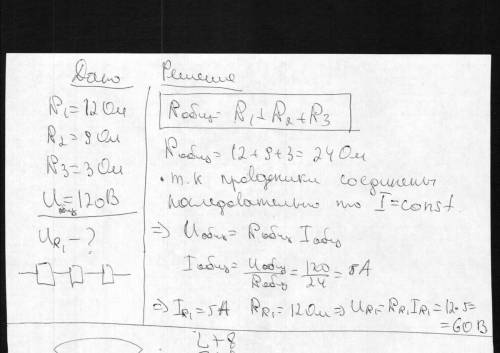 Дано
R₁=12 Ом
R₂=9 Ом
R₃=3 Ом
Uобщ=120 В
U_R₁ – ?
Решение
Rобщ = R₁ + R₂ + R₃
Rобщ = 12+9+3 = 24 Ом
• т.к проводники соединены
последовательно то I=const.
⇒ Uобщ = Rобщ Iобщ
Iобщ = Uобщ/Rобщ = 120/24 = 5А
⇒ I_R₁ = 5А R_R₁ = 12 Ом ⇒ U_R₁ = R_R₁ I_R₁ = 12·5=
= 60 В